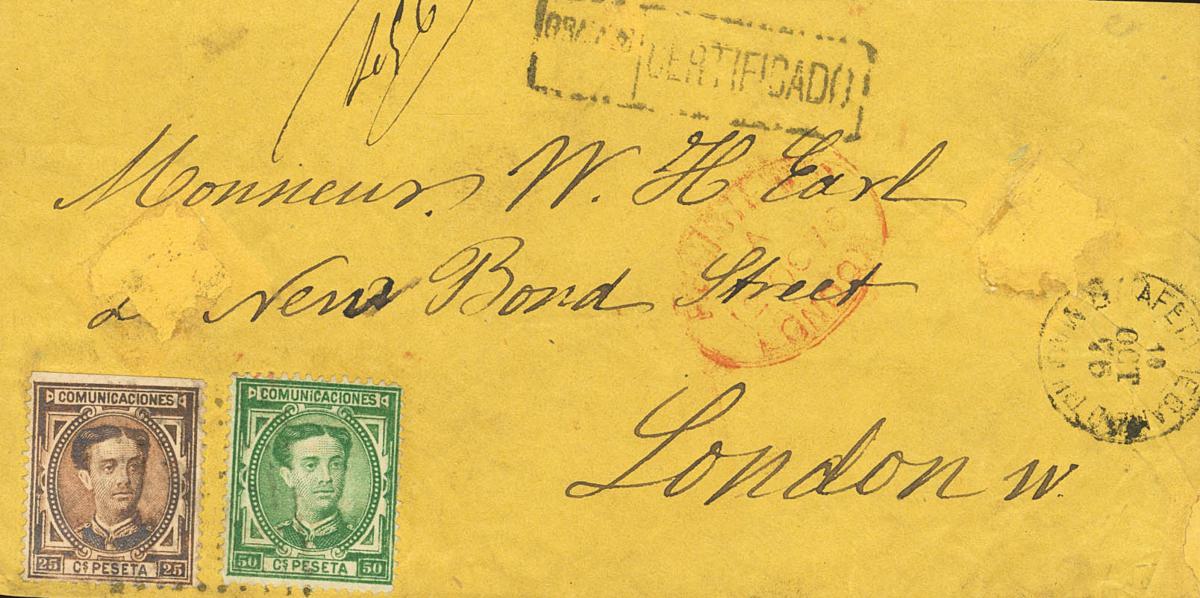 CERTIFICADO
Monsieur W. H Earl
2 New Bond Street
London W.
LONDON
10
OCT
76
COMUNICACIONES
25 Cs PESETA 25
COMUNICACIONES
50 Cs PESETA 50